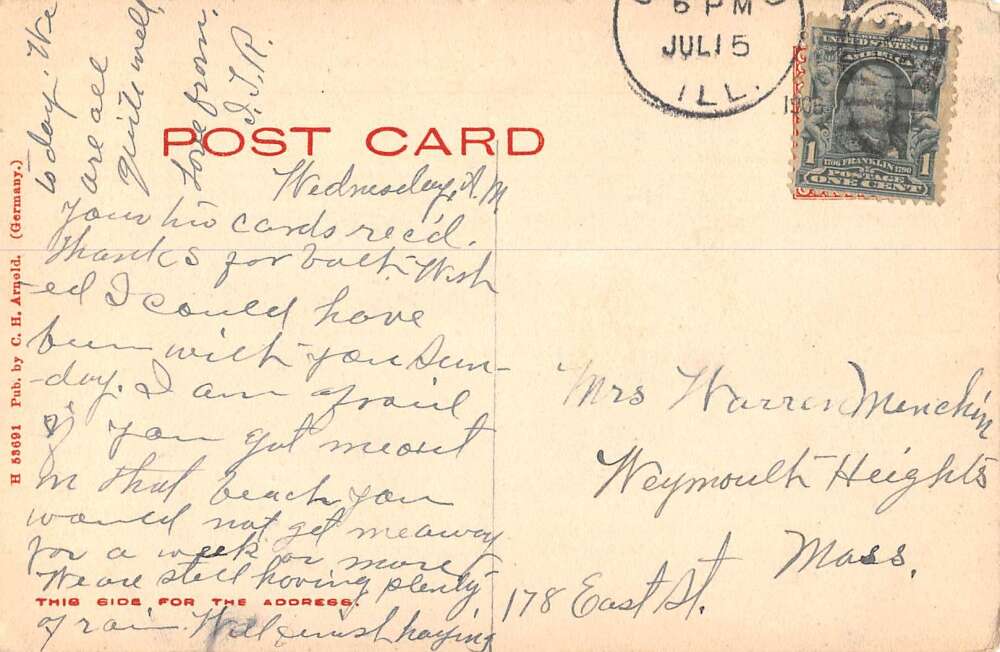 POST CARD
5 PM
JUL 15
ILL.
UNITED STATES OF
AMERICA
1 1706 FRANKLIN 1790 1
POSTAGE
ONE CENT
Wednesday, A.M
Your two cards rec'd.
Thanks for both. Wish
-ed I could have
been with you Sun-
-day. I am afraid
if you got me out
on that beach you
would not get me away
for a week or more.
We are still having plenty
of rain. Will finish haying
to day. We
are all
quite well,
Love from
J. R.
Mrs Warren
Weymouth Heights
Mass.
178 East St.
THIS SIDE FOR THE ADDRESS.
H 53691 Pub. by C. H. Arnold. (Germany.)